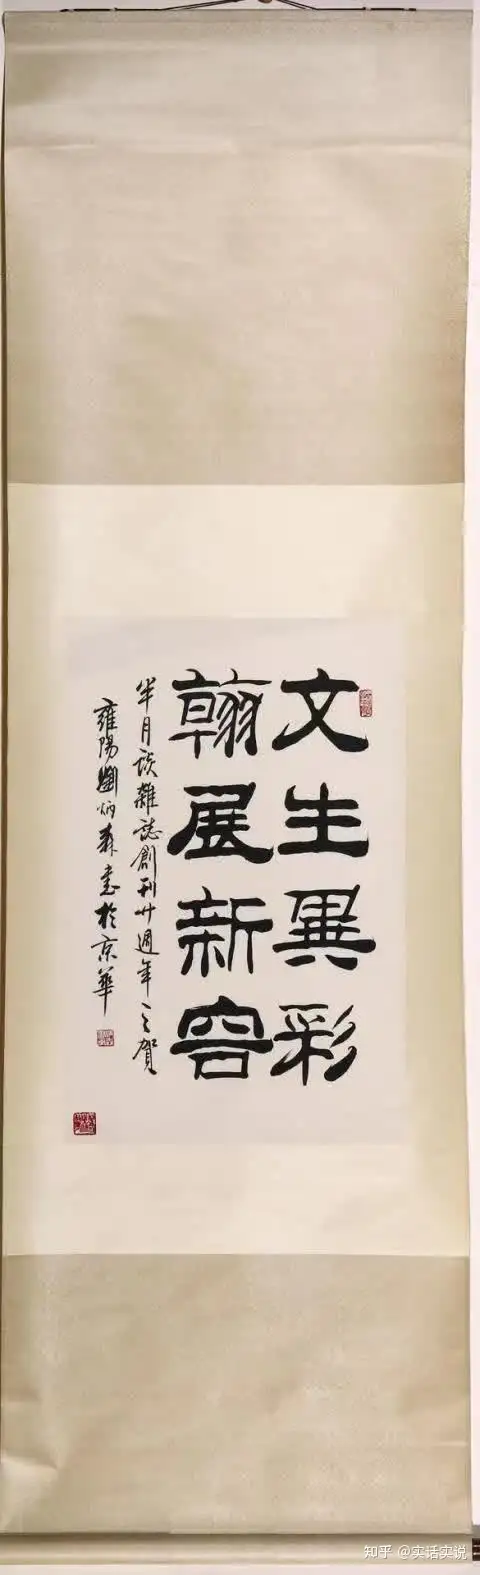 文生異彩
翰展新容
半月谈雜誌創刊廿週年之賀
雍陽劉炳森書於京華
知乎 @实话实说